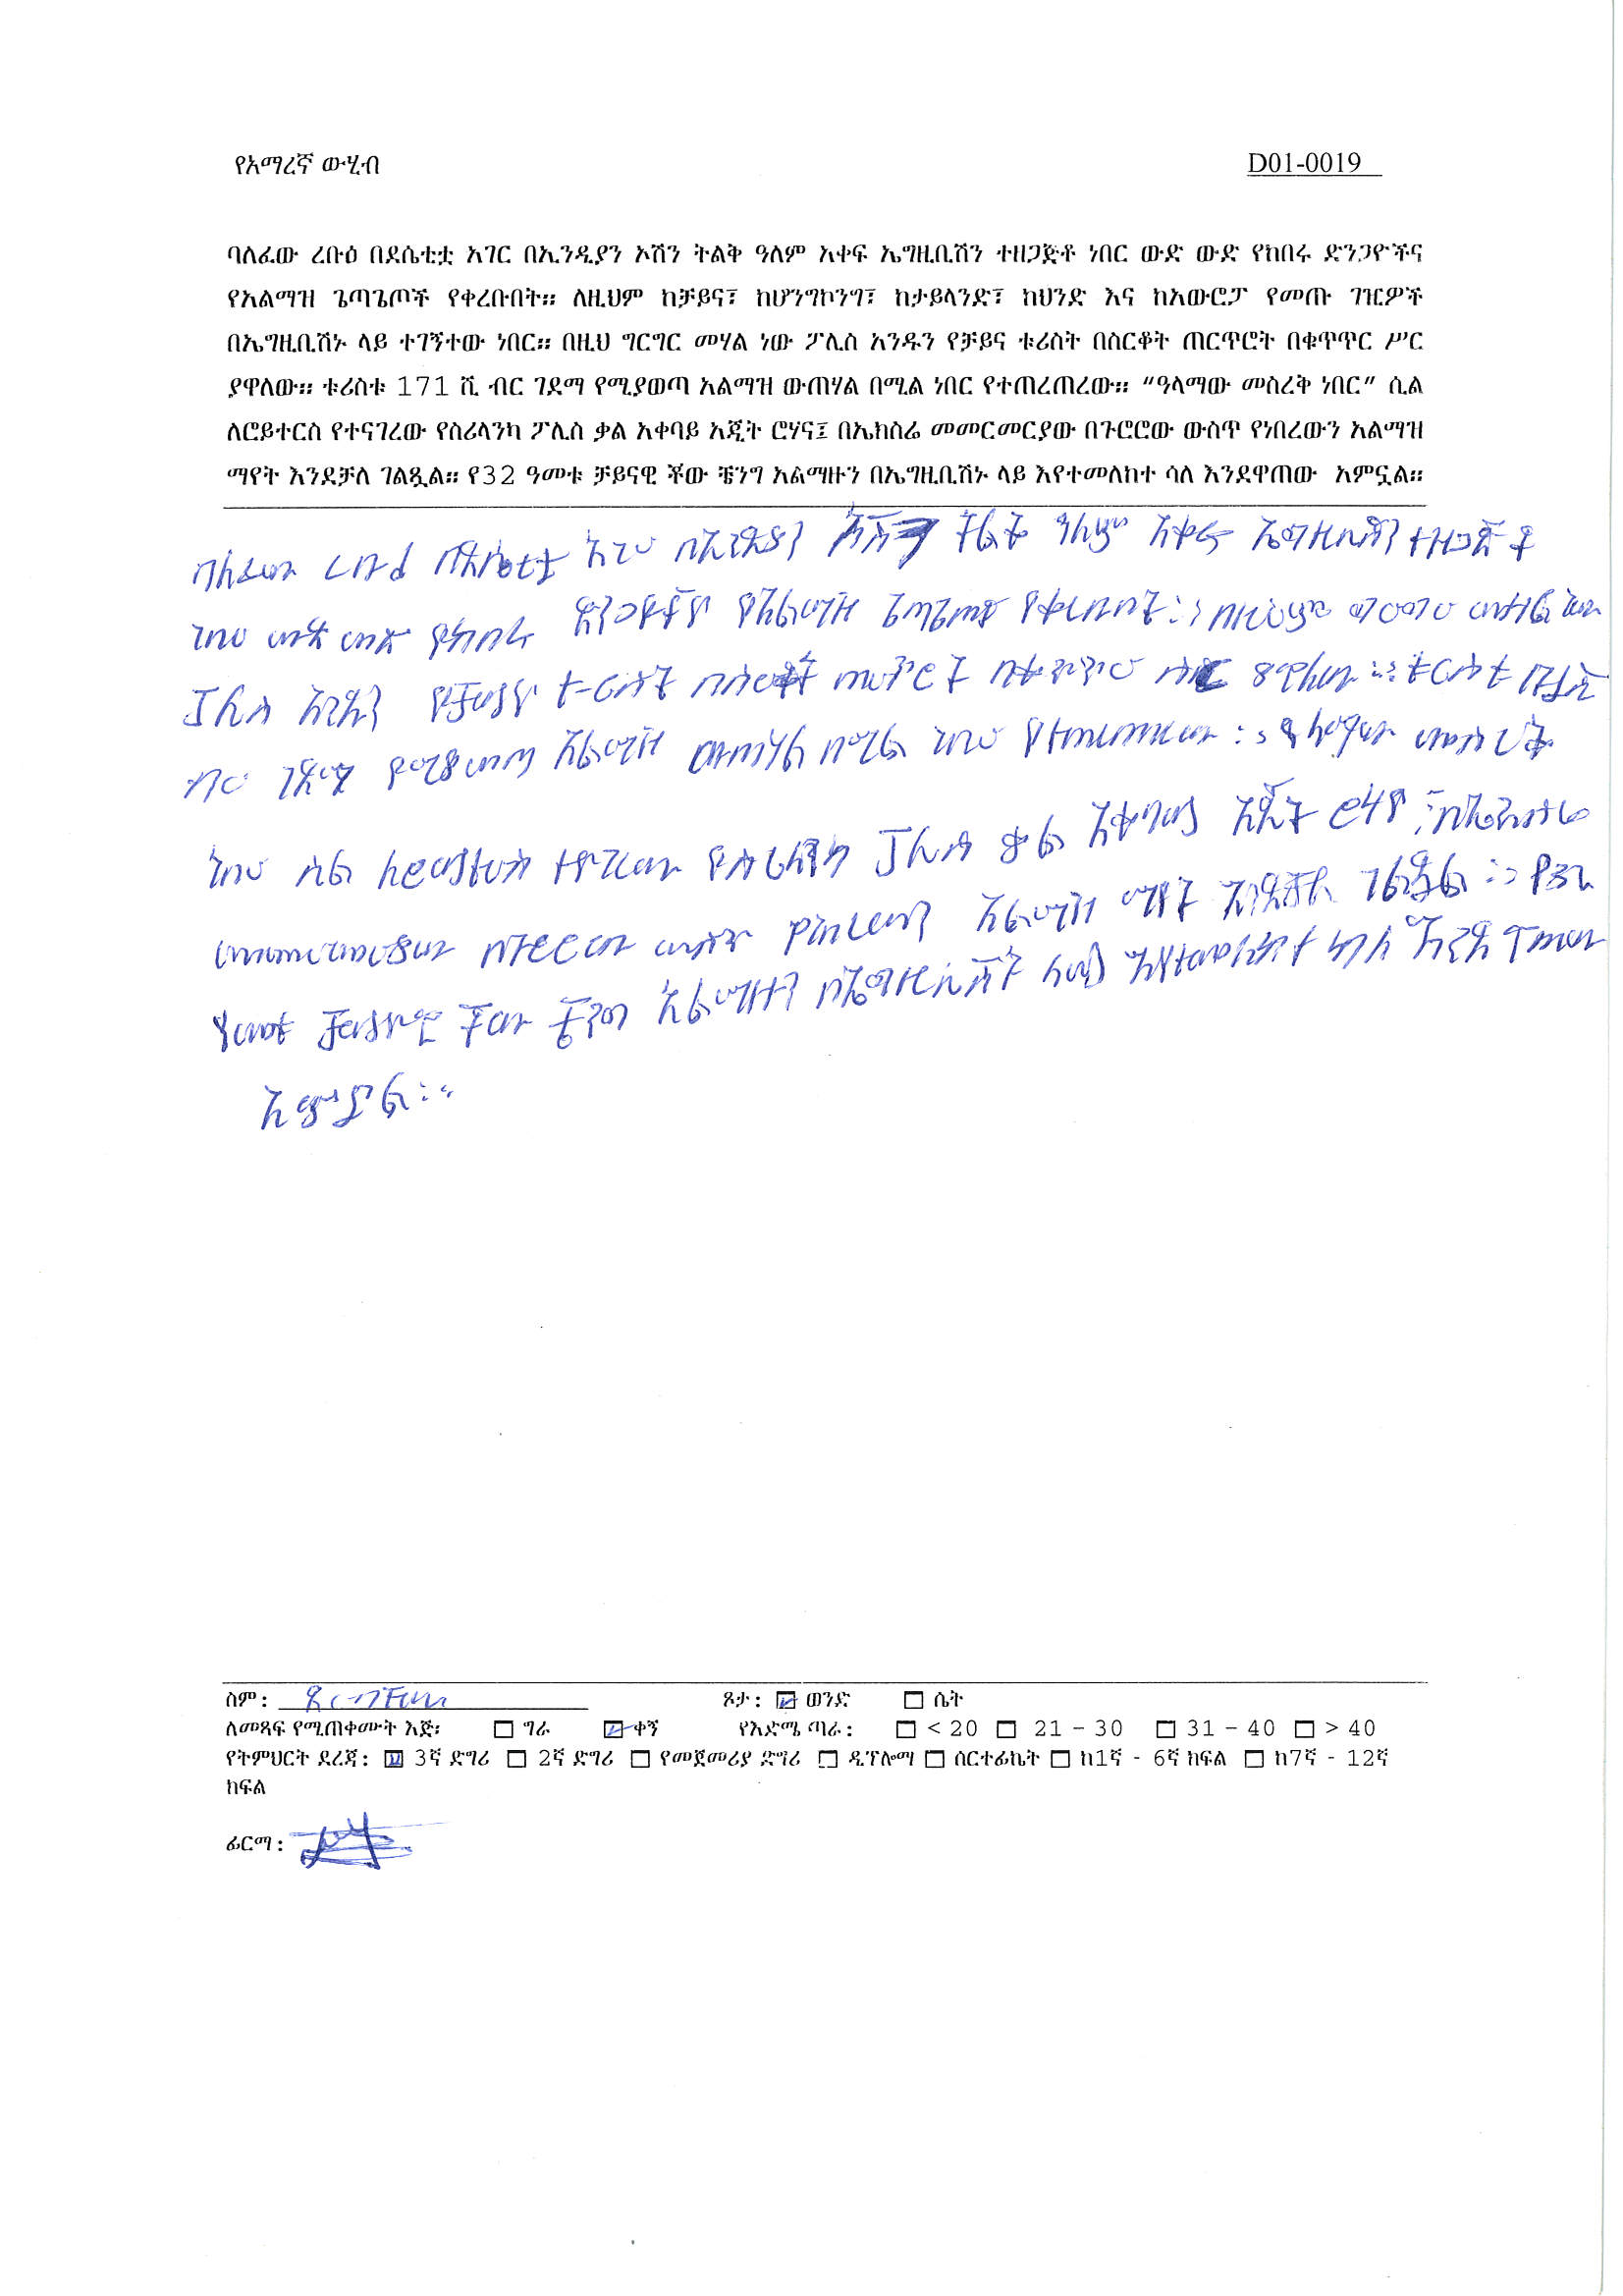 የአማረኛ ውሂብ D01-0019
ባለፈው ረቡዕ በደሴቲቷ አገር በኢንዲያን ኦሽን ትልቅ ዓለም አቀፍ ኤግዚቢሽን ተዘጋጅቶ ነበር ውድ ውድ የከበሩ ድንጋዮችና
የአልማዝ ጌጣጌጦች የቀረቡበት። ለዚህም ከቻይና፣ ከሆንግኮንግ፣ ከታይላንድ፣ ከህንድ እና ከአውሮፓ የመጡ ገዢዎች
በኤግዚቢሽኑ ላይ ተገኝተው ነበር። በዚህ ግርግር መሃል ነው ፖሊስ አንዱን የቻይና ቱሪስት በስርቆት ጠርጥሮት በቁጥጥር ሥር
ያዋለው። ቱሪስቱ 171 ሺ ብር ገደማ የሚያወጣ አልማዝ ውጠሃል በሚል ነበር የተጠረጠረው። “ዓላማው መስረቅ ነበር” ሲል
ለሮይተርስ የተናገረው የስሪላንካ ፖሊስ ቃል አቀባይ አጂት ሮሃና፤ በኤክስሬ መመርመርያው በጉሮሮው ውስጥ የነበረውን አልማዝ
ማየት እንደቻለ ገልጿል። የ32 ዓመቱ ቻይናዊ ቾው ቼንግ አልማዙን በኤግዚቢሽኑ ላይ እየተመለከተ ሳለ እንደዋጠው አምኗል።
ባለፈው ረቡዕ በደሴቲቷ አገር በኢንዲያን ትልቅ ዓለም አቀፍ ኤግዚቢሽን ተዘጋጅቶ
ነበር ውድ ውድ የከበሩ ድንጋዮችና የአልማዝ ጌጣጌጦች የቀረቡበት። በዚህም ግርግር መሃል ነው
ፖሊስ አንዱን የቻይና ቱሪስት በስርቆት ጠርጥሮት በቁጥጥር ስር ያዋለው። ቱሪስቱ
ብር ገደማ የሚያወጣ አልማዝ ውጠሃል በሚል ነበር የተጠረጠረው። ዓላማው መስረቅ
ነበር ሲል ለሮይተርስ የተናገረው የስሪላንካ ፖሊስ ቃል አቀባይ አጂት ሮሃና፤ በኤክስሬ
መመርመርያው በጉሮሮው ውስጥ የነበረውን አልማዝ ማየት እንደቻለ ገልጿል። የ32
ዓመቱ ቻይናዊ ቾው ቼንግ አልማዙን በኤግዚቢሽኑ ላይ እየተመለከተ ሳለ እንደዋጠው
አምኗል።
ስም: ጾታ: ወንድ ሴት
ለመጻፍ የሚጠቀሙት እጅ፡ ግራ ቀኝ የእድሜ ጣራ: < 20 21 – 30 31 – 40 > 40
የትምህርት ደረጃ: 3ኛ ድግሪ 2ኛ ድግሪ የመጀመሪያ ድግሪ ዲፕሎማ ሰርተፊኬት ከ1ኛ - 6ኛ ክፍል ከ7ኛ - 12ኛ
ክፍል
ፊርማ: